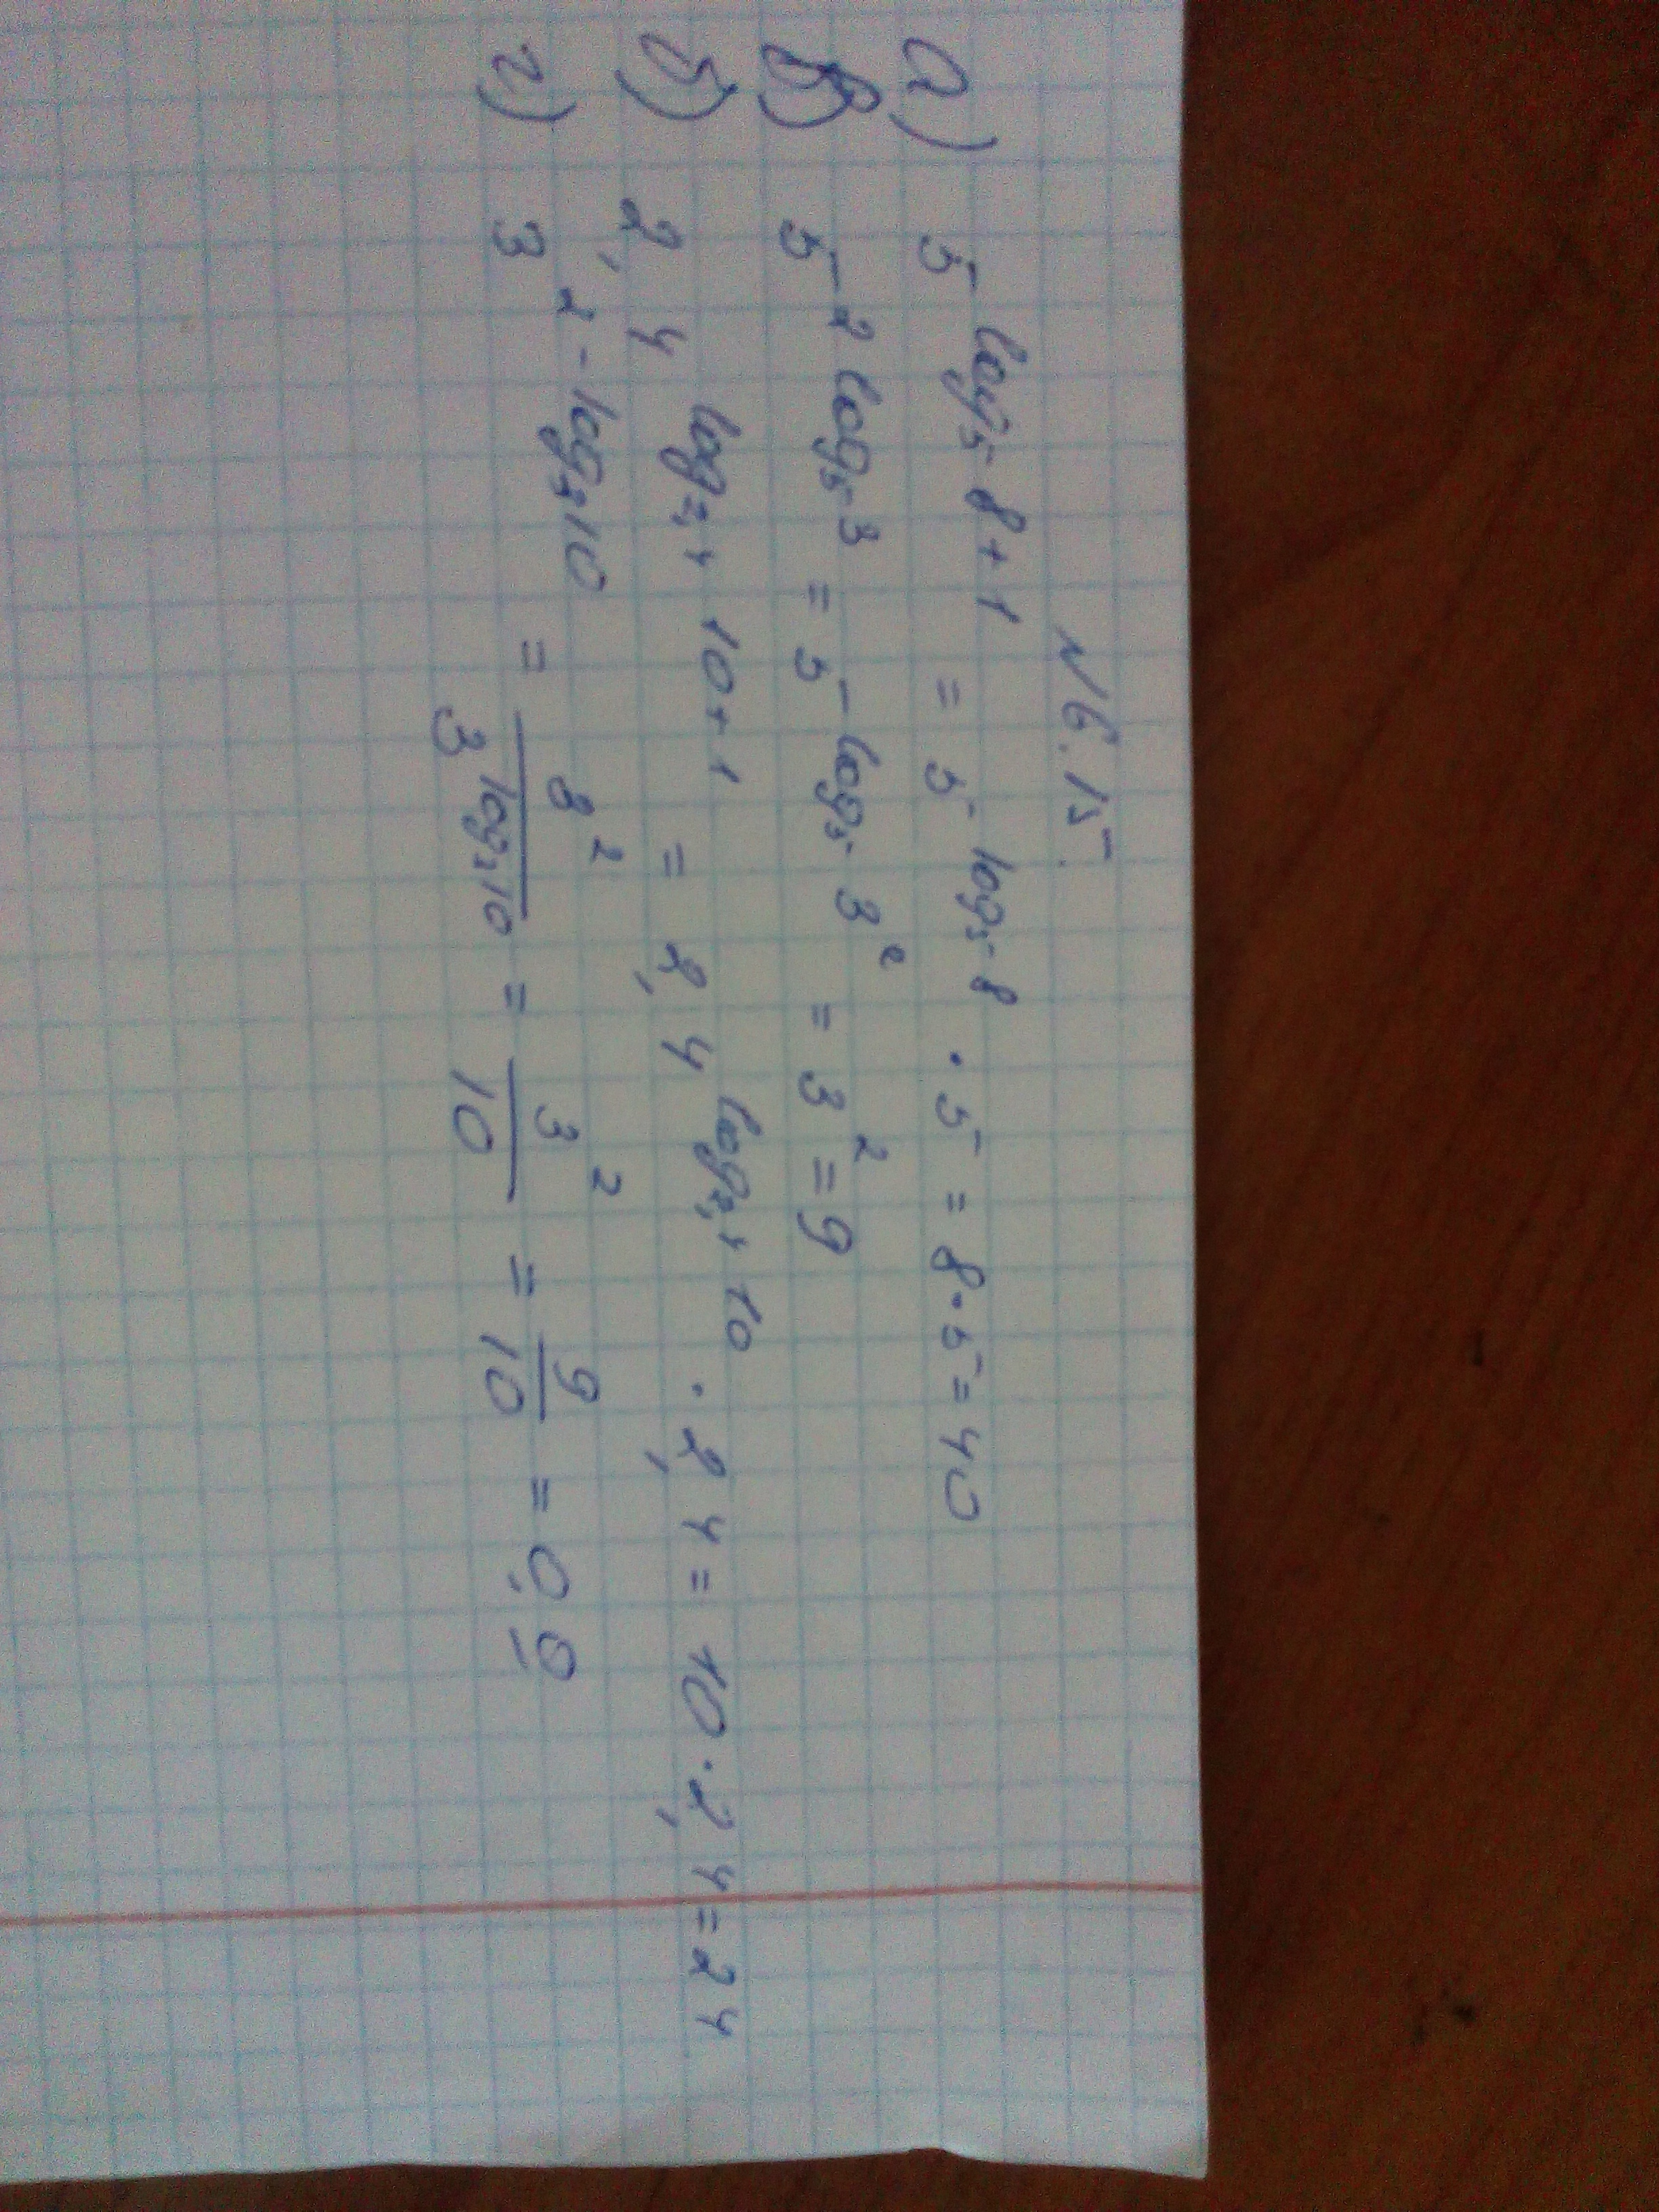 №6.15.
а) 5^(log₅8+1) = 5^(log₅8) · 5 = 8·5 = 40
в) 5^(2log₅3) = 5^(log₅3²) = 3² = 9
б) 2,4^(log₂,₄10+1) = 2,4^(log₂,₄10) · 2,4 = 10·2,4 = 24
г) 3^(2-log₃10) = 8²/3^(log₃10) = 3²/10 = 9/10 = 0,9